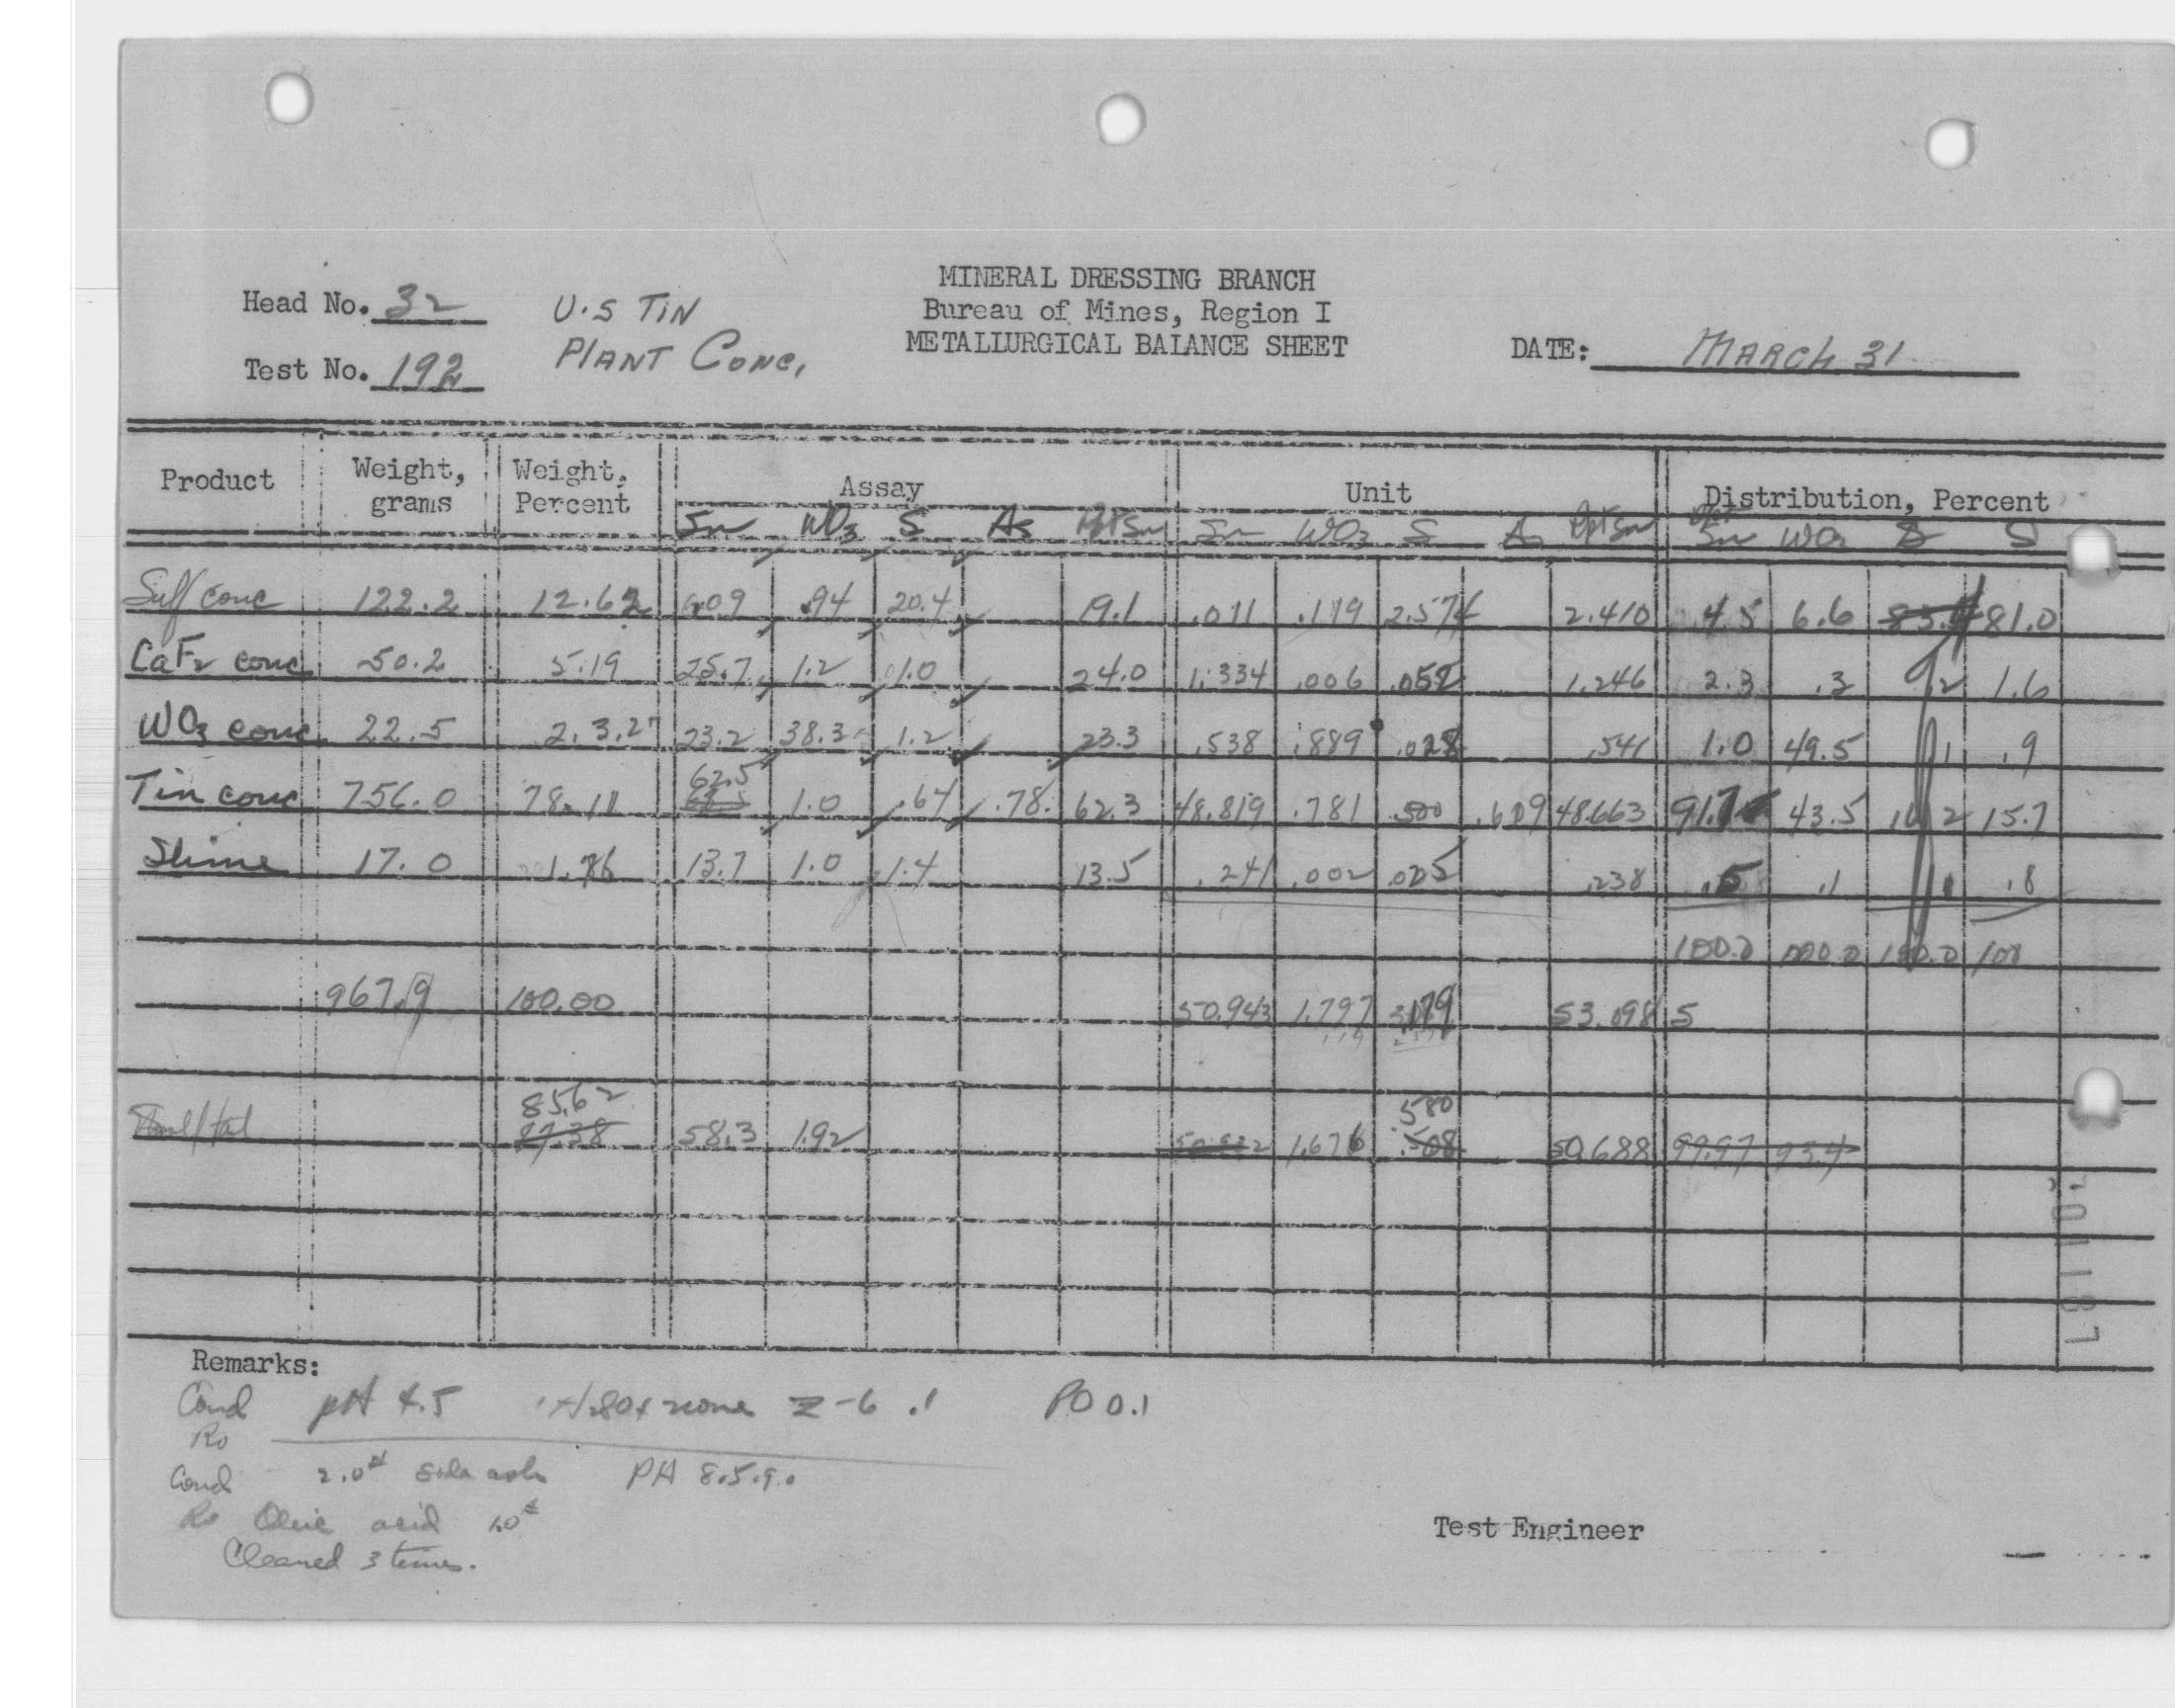 MINERAL DRESSING BRANCH
Head No. 32 U.S TIN Bureau of Mines, Region I
Test No. 192 PLANT CONC. METALLURGICAL BALANCE SHEET DATE: MARCH 31
Product Weight, grams Weight, Percent Assay Unit Distribution, Percent
Sn WO3 S As RptSn Sn WO3 S As RptSn Sn WO3 S S
Sulf conc 122.2 12.62 .94 20.4 19.1 .011 .119 2.574 2.410 4.5 6.6 81.0
CaF2 conc 50.2 5.19 25.7 1.2 1.0 24.0 1.334 .006 .052 1.246 2.3 .3 1.6
WO3 conc 22.5 2.32 23.2 38.3 1.2 23.3 .538 .889 .028 .541 1.0 49.5 .1 .9
62.5
Tin conc 756.0 78.11 1.0 .64 .78 62.3 48.819 .781 .500 .609 48.663 91.7 43.5 15.7
Slime 17.0 1.76 13.7 1.0 1.4 13.5 .241 .002 .025 .238 .5 .1 .8
100.0 100.0 100.0 100
967.9 100.00 50.943 1.797 3.179 53.098 5
85.62 .580
87.38 58.3 1.92 1.676 .508 50.688 99.97 93.4
Remarks:
Cond pH 4.5 H2SO4 none Z-6 .1 PO 0.1
Ro
Cond 2.0# soda ash PH 8.5.9.0
Ro Oleic acid 1.0#
Cleaned 3 times.
Test Engineer